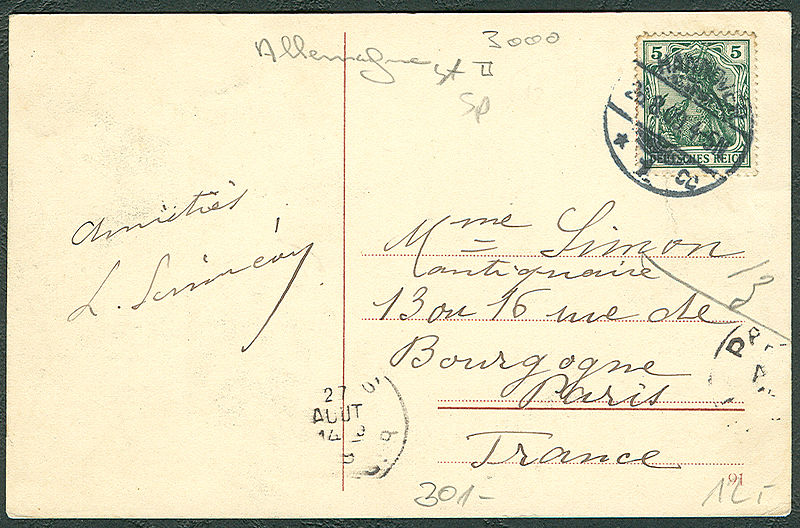 Allemagne
3000
st II
Sp
5 5
HANNOVER
DEUTSCHES REICH
Amitiés
Mme Simon
antiquaire
13 ou 16 rue de
Bourgogne
Paris
France
13
27
AOUT
14
301-
91
12,-